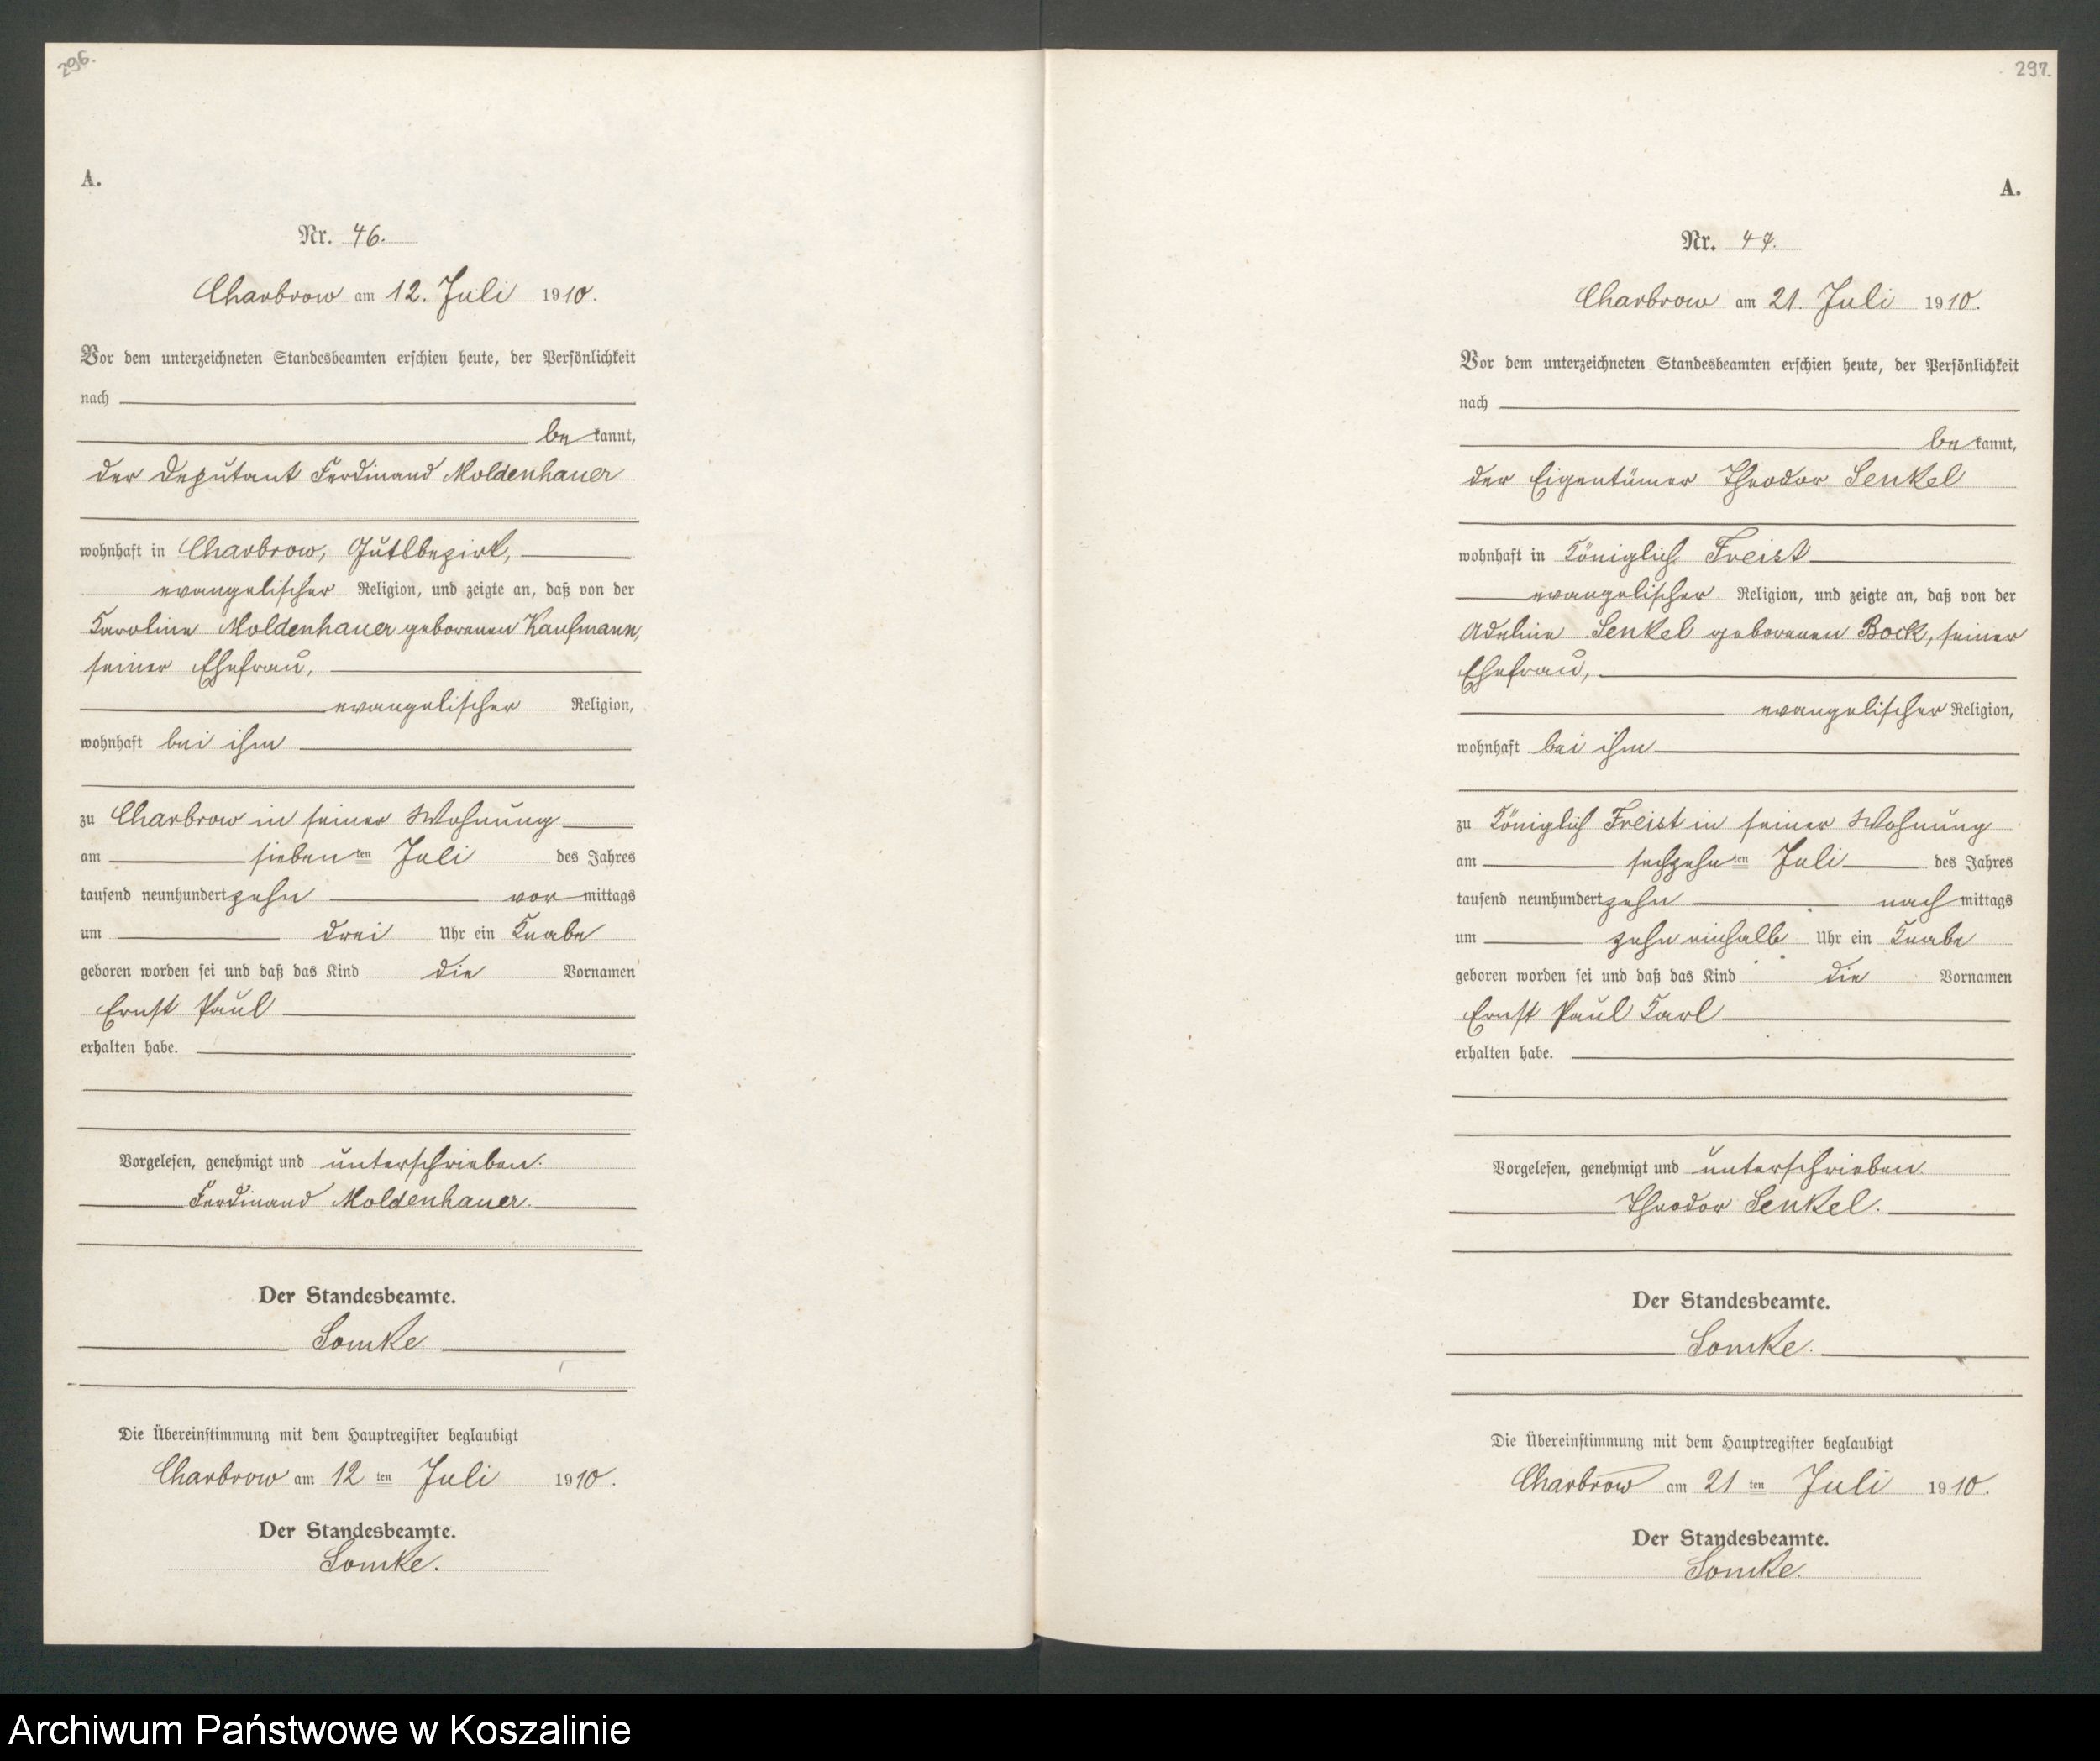 296.
A.
Nr. 46.
Charbrow am 12. Juli 1910.
Vor dem unterzeichneten Standesbeamten erschien heute, der Persönlichkeit
nach
be kannt,
der Deputant Ferdinand Moldenhauer
wohnhaft in Charbrow, Gutsbezirk,
evangelischer Religion, und zeigte an, daß von der
Karoline Moldenhauer geborenen Kaufmann,
seiner Ehefrau,
evangelischer Religion,
wohnhaft bei ihm
zu Charbrow in seiner Wohnung
am siebenten Juli des Jahres
tausend neunhundert zehn vor mittags
um drei Uhr ein Knabe
geboren worden sei und daß das Kind die Vornamen
Ernst Paul
erhalten habe.
Vorgelesen, genehmigt und unterschrieben.
Ferdinand Moldenhauer.
Der Standesbeamte.
Lomke.
Die Übereinstimmung mit dem Hauptregister beglaubigt
Charbrow am 12 ten Juli 1910.
Der Standesbeamte.
Lomke.
297.
A.
Nr. 47.
Charbrow am 21. Juli 1910.
Vor dem unterzeichneten Standesbeamten erschien heute, der Persönlichkeit
nach
be kannt,
der Eigentümer Theodor Senkel
wohnhaft in Königlich Freist
evangelischer Religion, und zeigte an, daß von der
Adeline Senkel geborenen Bock, seiner
Ehefrau,
evangelischer Religion,
wohnhaft bei ihm
zu Königlich Freist in seiner Wohnung
am sechzehnten Juli des Jahres
tausend neunhundert zehn nach mittags
um zehn einhalb Uhr ein Knabe
geboren worden sei und daß das Kind die Vornamen
Ernst Paul Karl
erhalten habe.
Vorgelesen, genehmigt und unterschrieben.
Theodor Senkel.
Der Standesbeamte.
Lomke.
Die Übereinstimmung mit dem Hauptregister beglaubigt
Charbrow am 21 ten Juli 1910.
Der Standesbeamte.
Lomke.
Archiwum Państwowe w Koszalinie